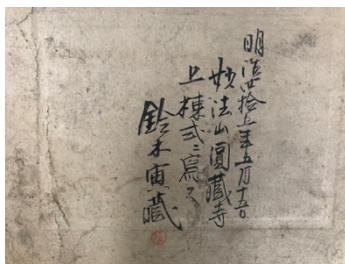 明治四拾上年五月十五日
妙法山圓藏寺
上棟式ニ寫之
鈴木寅藏